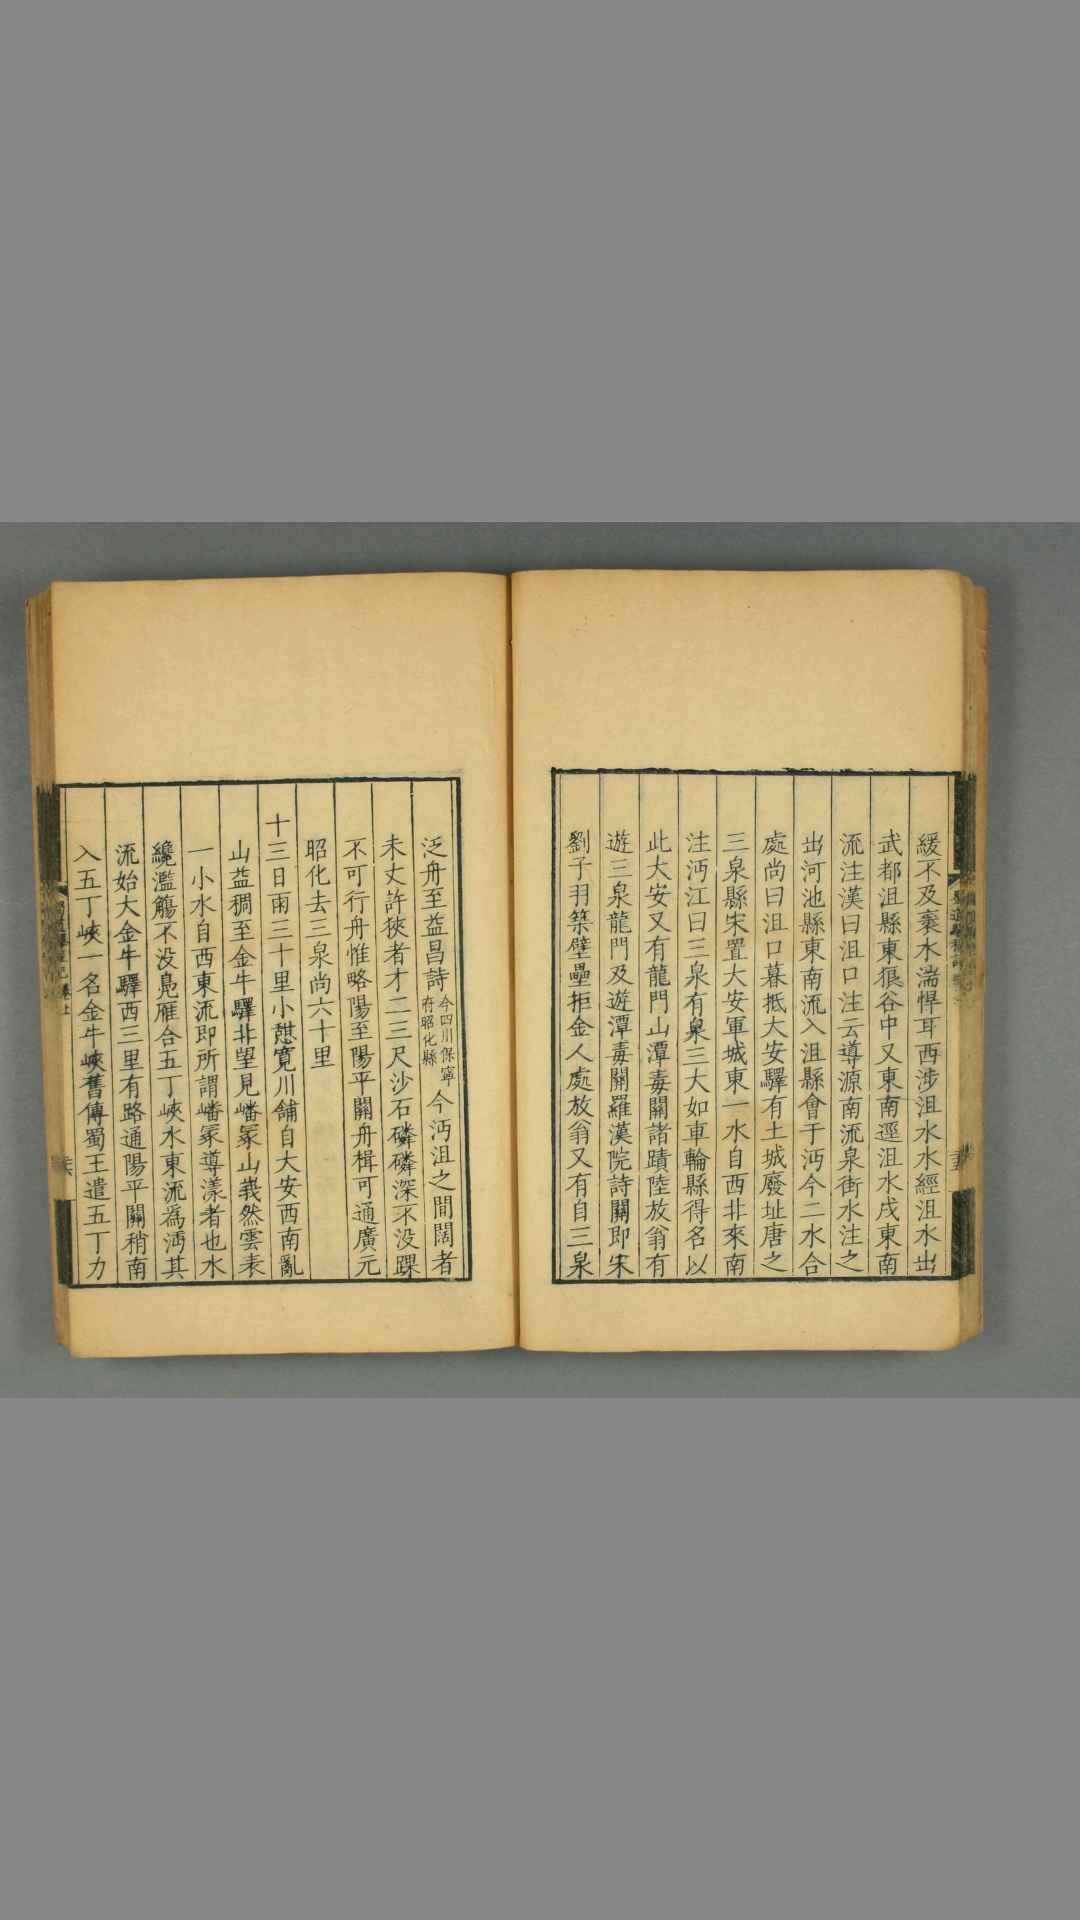 緩不及褒水湍悍耳西涉沮水水經沮水出
武都沮縣東狼谷中又東南逕沮水戍東南
流注漢曰沮口注云導源南流泉街水注之
出河池縣東南流入沮縣會于沔今二水合
處尚曰沮口暮抵大安驛有土城廢址唐之
三泉縣宋置大安軍城東一水自西北來南
注沔江曰三泉有泉三大如車輪縣得名以
此大安又有龍門山潭毒關諸蹟陸放翁有
遊三泉龍門及遊潭毒關羅漢院詩關即宋
劉子羽築壁壘拒金人處放翁又有自三泉
泛舟至益昌詩今四川保寧府昭化縣今沔沮之間闊者
未丈許狹者才二三尺沙石磷磷深不没踝
不可行舟惟略陽至陽平關舟楫可通廣元
昭化去三泉尚六十里
十三日雨三十里小憇寛川舖自大安西南亂
山益稠至金牛驛北望見嶓冢山峩然雲表
一小水自西東流即所謂嶓冢導漾者也水
纔濫觴不没鳧雁合五丁峽水東流為沔其
流始大金牛驛西三里有路通陽平關稍南
入五丁峽一名金牛峽舊傳蜀王遣五丁力